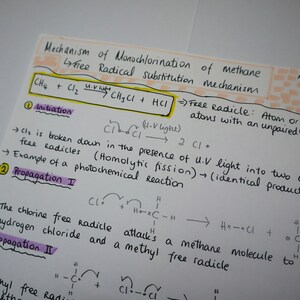 Mechanism of Monochlorination of methane
↳ Free Radical substitution mechanism
CH₄ + Cl₂ —U.V light→ CH₃Cl + HCl
→ Free radicle: Atom or
atoms with an unpaired
① Initiation
Cl — Cl (U.V light) → 2 Cl•
→ Cl₂ is broken down in the presence of U.V light into two
free radicles (Homolytic fission) → (identical product
→ Example of a photochemical reaction
② Propagation I
Cl• + H — C — H → H — Cl +
H
H
The chlorine free radicle attacks a methane molecule to
hydrogen chloride and a methyl free radicle
Propagation II
H
H — C• + Cl — Cl →
methyl free